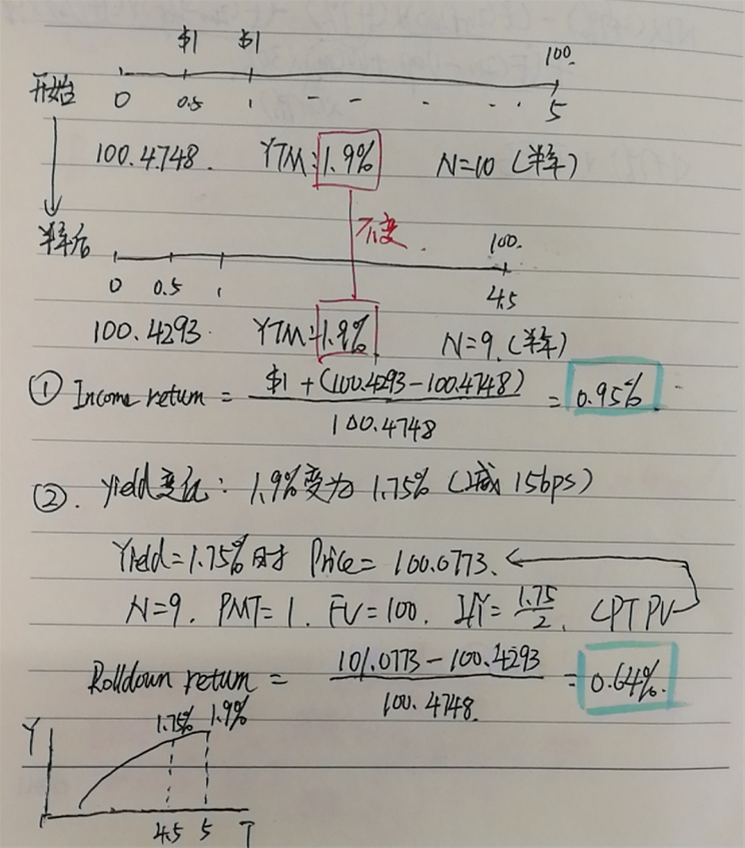 $1 $1 100.
开始 0 0.5 1 - - - . . 5
100.4748. YTM=1.9% N=10 (半年)
不变.
半年后 100.
0 0.5 1 4.5
100.4293. YTM=1.9% N=9. (半年)
① Income return = $1 + (100.4293-100.4748) / 100.4748 = 0.95%.
②. Yield变化: 1.9%变为1.75% (减15bps)
Yield=1.75%时 Price= 100.0773.
N=9. PMT=1. FV=100. I/Y=1.75/2. CPT PV
Rolldown return = 101.0773-100.4293 / 100.4748. = 0.64%.
Y 1.75% 1.9%
4.5 5 T